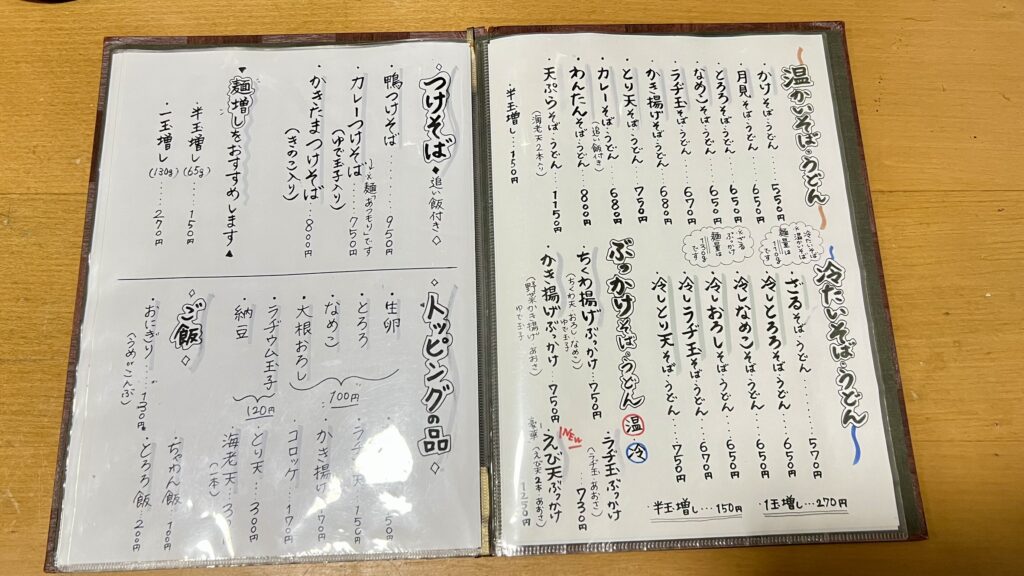 温かいそば・うどん
・かけそば・うどん……550円
・月見そば・うどん……650円
・とろろそば・うどん……650円
・なめこそば・うどん……650円
・ラヂ玉そば・うどん……670円
・かき揚げそば・うどん……680円
・とり天そば・うどん……750円
・カレーそば・うどん……680円
(追い飯付き)
・わんたんそば・うどん……800円
・天ぷらそば・うどん……1150円
(海老天2本入り)
・半玉増し…150円
冷たいそば・うどん
・ざるそば・うどん……570円
・冷しとろろそば・うどん…650円
・冷しなめこそば・うどん…650円
・冷しおろしそば・うどん…650円
・冷しラヂ玉そば・うどん…670円
・冷しとり天そば・うどん…750円
半玉増し…150円
1玉増し…270円
ぶっかけそば・うどん 温 冷
・ちくわ揚げぶっかけ…750円
・かき揚げぶっかけ 750円
・ラヂ玉ぶっかけ
(ラヂ玉 あおさ) 730円
NEW
えび天ぶっかけ
(えび天2本 あおさ) 1250円
つけそば
◆追い飯付き◇
・鴨つけそば……950円
・カレーつけそば……750円
(ゆで玉子入り)
・かきたまつけそば…800円
(きのこ入り)
▼麺増しをおすすめします▲
・半玉増し……150円
(65g)
・一玉増し……270円
(130g)
◇トッピングの品◇
・生卵
・とろろ
・なめこ
・大根おろし
100円
・ラヂウム玉子
・納豆
120円
・かき揚げ
・コロッケ…170円
・とり天…300円
・海老天
ご飯
・おにぎり……130円
(うめ or こんぶ)
・ちゃわん飯
・とろろ飯…200円